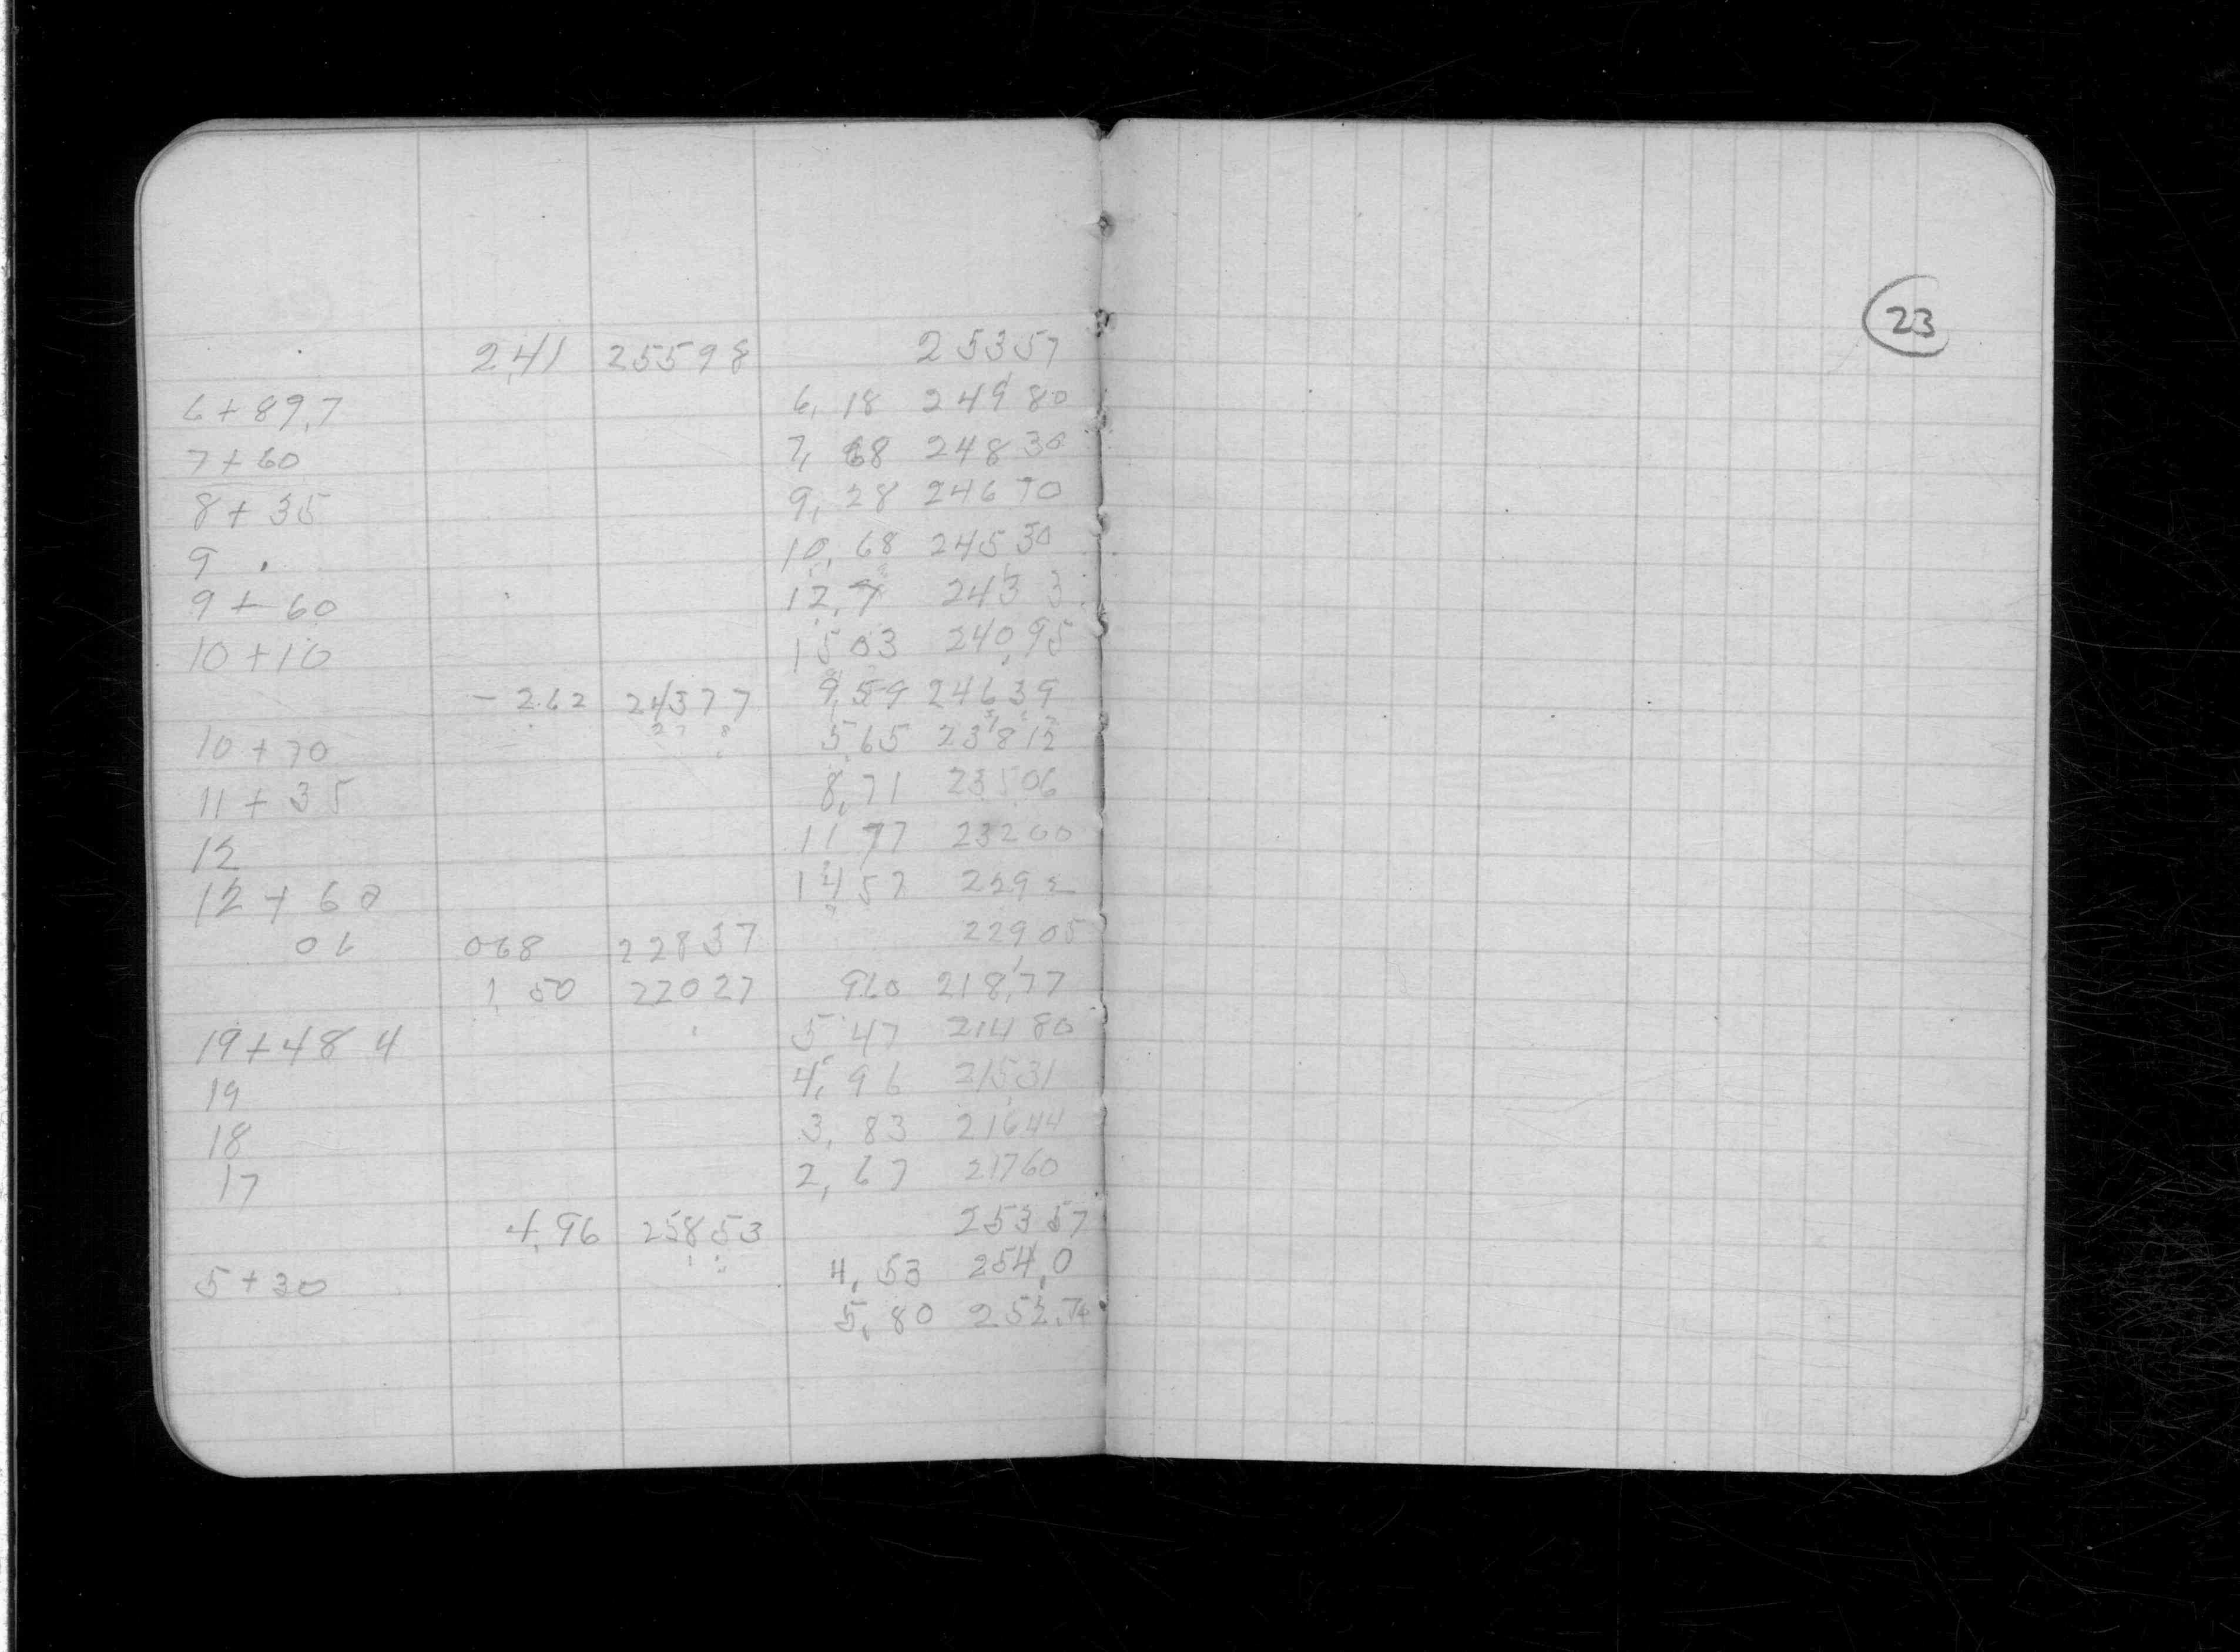 2,41 25598 25357
6+89,7 6,18 24980
7+60 7,68 24830
8+35 9,28 24670
9 10,68 24530
9+60 12,7 243 3
10+10 1503 240,95
-2.62 24377 9,59 24639
10+70 5,65 23812
11+35 8,71 23506
12 11 77 23200
12+60 1457
068 22837 22905
1,50 22027 960 218,77
19+48 4 5 47 21480
19 4,96 21531
18 3,83 21644
17 2,67 21760
4,96 25853 25357
5+30 4,53 254,0
5,80
23